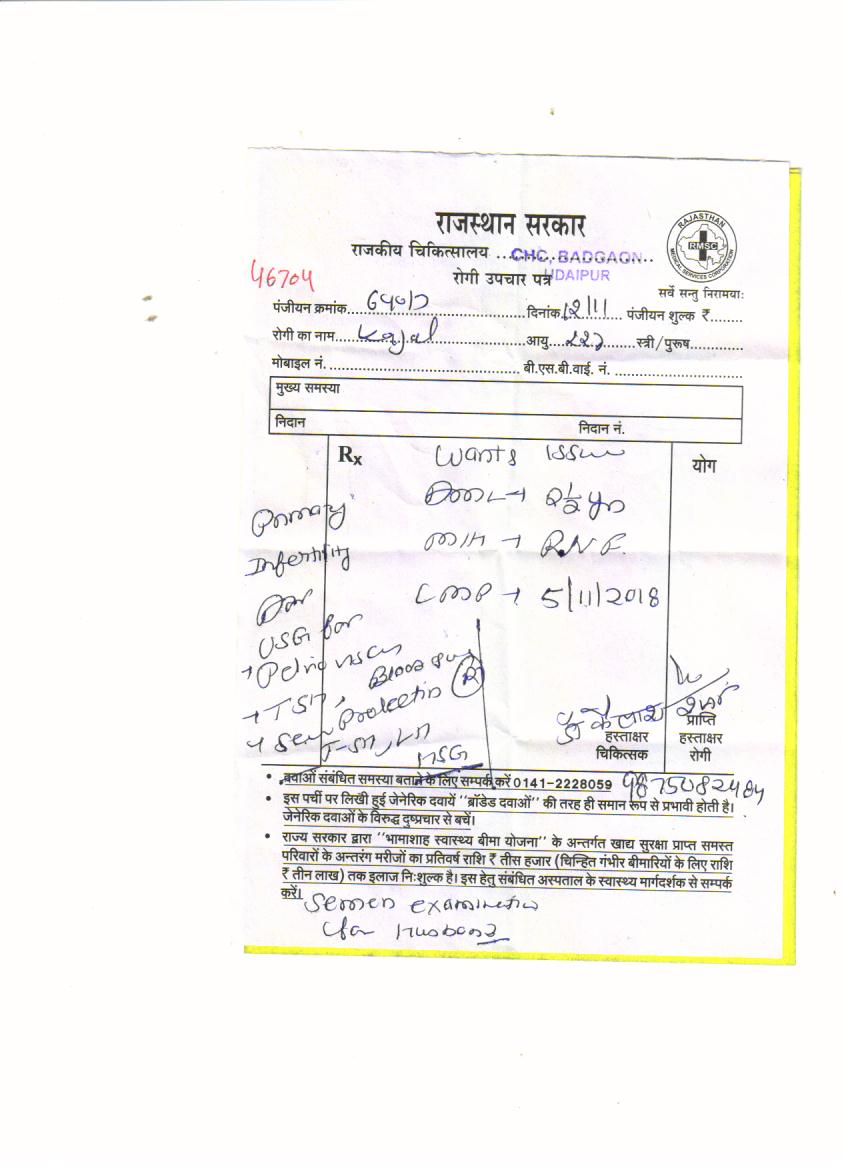 राजस्थान सरकार
RAJASTHAN MEDICAL SERVICES CORPORATION
RMSC
राजकीय चिकित्सालय ... CHC, BADGAON
UDAIPUR
रोगी उपचार पत्र
सर्वे सन्तु निरामयाः
46704
पंजीयन क्रमांक........ दिनांक 12/11 पंजीयन शुल्क ₹........
रोगी का नाम.... Kajal .... आयु.... 22 .... स्त्री/पुरूष.............
मोबाइल नं. .......... बी.एस.बी.वाई. नं. ..........
मुख्य समस्या
निदान निदान नं.
Rx Wants issue योग
→ 2½ yr
Primary
Infertility
M/H → R.N.F.
LMP → 5/11/2018
USG for
→ Pelvic
→ TSH,
Prolactin
HSG
डॉ कैलाश शर्मा
हस्ताक्षर चिकित्सक
प्राप्ति हस्ताक्षर रोगी
• दवाओं संबंधित समस्या बताने के लिए सम्पर्क करें 0141-2228059 9875082484
• इस पर्ची पर लिखी हुई जेनेरिक दवायें "ब्रॉडेड दवाओं" की तरह ही समान रूप से प्रभावी होती है।
जेनेरिक दवाओं के विरुद्ध दुष्प्रचार से बचें।
• राज्य सरकार द्वारा "भामाशाह स्वास्थ्य बीमा योजना" के अन्तर्गत खाद्य सुरक्षा प्राप्त समस्त
परिवारों के अन्तरंग मरीजों का प्रतिवर्ष राशि ₹ तीस हजार (चिन्हित गंभीर बीमारियों के लिए राशि
₹ तीन लाख) तक इलाज निःशुल्क है। इस हेतु संबंधित अस्पताल के स्वास्थ्य मार्गदर्शक से सम्पर्क
करें।
Semen examination
for Husband